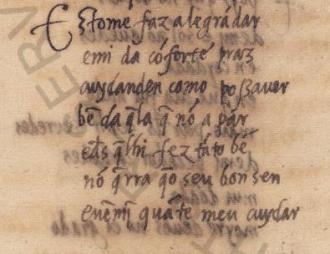 Estome faz alegrãdar
emi da cõforte praz
cuydanden como possauer
bẽ da q̃la q̃ nõ á par
eds q̃lhi fez tãto bẽ
nõ q̃rra q̃o seu bon sen
eueñmĩ quãte meu cuydar